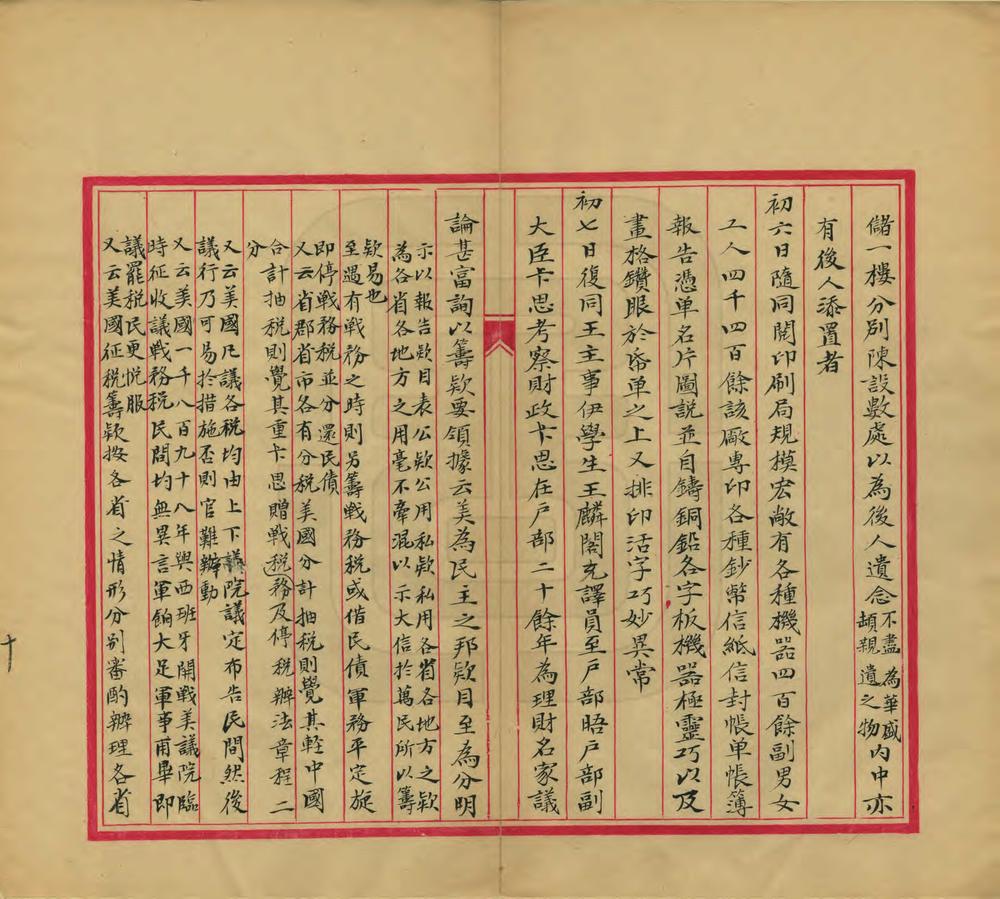 儲一樓分別陳設數處以為後人遺念不盡為華盛頓親遺之物内中亦
有後人添置者
初六日隨同閱印刷局規模宏敞有各種機器四百餘副男女
工人四千四百餘該廠專印各種鈔幣信紙信封帳单帳簿
報告憑单名片圖説並自鑄銅鉛各字板機器極靈巧以及
畫格鑽眼於帋单之上又排印活字巧妙異常
初七日復同王主事伊學生王麟閣充譯員至戸部晤戸部副
大臣卡思考察財政卡思在戸部二十餘年為理財名家議
論甚富詢以籌欵要領據云美為民主之邦欵目至為分明
示以報告欵目表公欵公用私欵私用各省各地方之欵
為各省各地方之用毫不牽混以示大信於萬民所以籌
欵易也
至遇有戰務之時則另籌戰務税或借民債軍務平定旋
即停戰務税並分還民債
又云省郡省市各有分税美國分計抽税則覺其輕中國
合計抽税則覺其重卡思贈戰税務及停税辦法章程二
分
又云美國凡議各税均由上下議院議定布告民間然後
議行乃可易於措施否則官難辦動
又云美國一千八百九十八年與西班牙開戰美議院臨
時征收議戰務税民間均無異言軍餉大足軍事甫畢即
議罷税民更悦服
又云美國征税籌欵按各省之情形分别審酌辦理各省
十